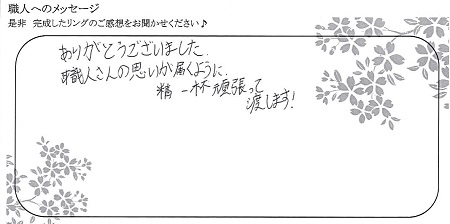 職人へのメッセージ
是非 完成したリングのご感想をお聞かせください♪
ありがとうございました.
職人さんの思いが届くように.
精一杯頑張って
渡します!